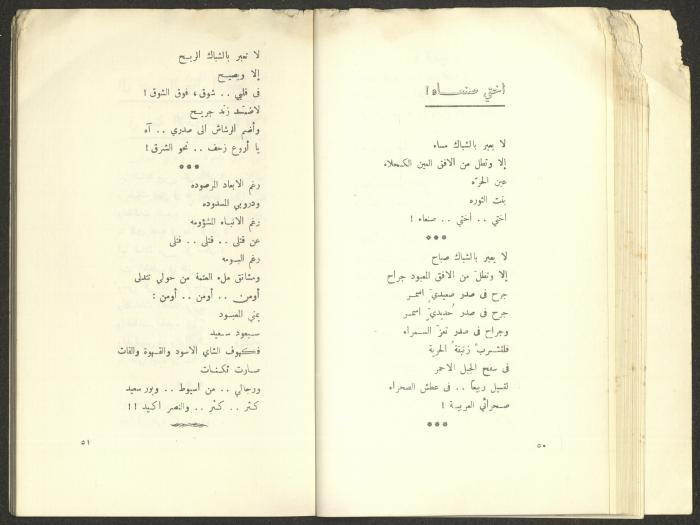 أختي صنعاء !
لا يعبر بالشباك مساء
إلا وتطل من الافق العين الكحلاء
عين الحرّه
بنت الثوره
اختي . . أختي . . صنعاء !
***
لا يعبر بالشباك صباح
إلا وتطلّ من الافق المعبود جراح
جرح فى صدر صعيديّ اسمر
جرح فى صدر حُديديّ اسمر
وجراح فى صدر تعزّ السمراء
فلتشرب زنبقةُ الحرية
فى سفح الجبل الاحمر
لتسيل ربيعاً . . فى عطش الصحراء
صحرائي العربية !
***
٥٠
لا تعبر بالشباك الريح
إلا ويصيح
فى قلبي . . شوق ، فوق الشوق !
لاضمّد زند جريح
وأضم الرشاش الى صدري . . آه
يا أروع زحف . . نحو الشرق !
***
رغم الابعاد المرصوده
ودروبي المسدوده
رغم الانباء المشؤومه
عن قتلى . . قتلى . . قتلى
رغم البومه
ومشانق ملء العتمة من حولي تتدلى
أومن . . أومن . . أومن :
يمني المعبود
سيعود سعيد
فكهوف الشاي الاسود والقهوة والقات
صارت ثكنات
ورجالي . . من أسيوط . . وبور سعيد
كثر . . كثر . . والنصر اكيد !!
٥١